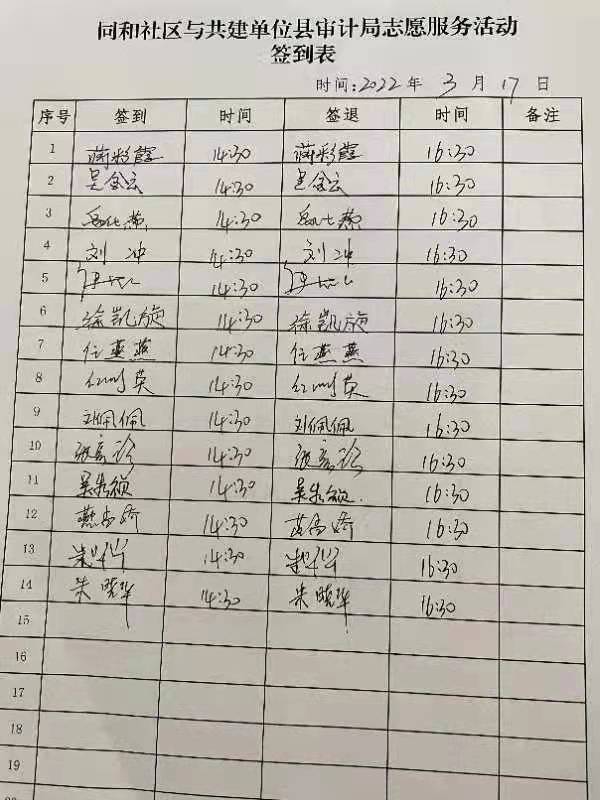 同和社区与共建单位县审计局志愿服务活动
签到表
时间:2022年 3 月 17 日
序号 签到 时间 签退 时间 备注
1 蒋彩霞 14:30 蒋彩霞 16:30
2 吴金云 14:30 吴金云 16:30
3 14:30 16:30
4 刘冲 14:30 刘冲 16:30
5 14:30 16:30
6 徐凯旋 14:30 徐凯旋 16:30
7 任燕燕 14:30 任燕燕 16:30
8 14:30 16:30
9 刘佩佩 14:30 刘佩佩 16:30
10 14:30 16:30
11 14:30 16:30
12 14:30 16:30
13 14:30 16:30
14 朱晓华 14:30 朱晓华 16:30
15
16
17
18
19